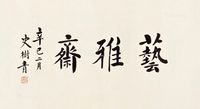 藝雅齋
辛巳二月
史樹青